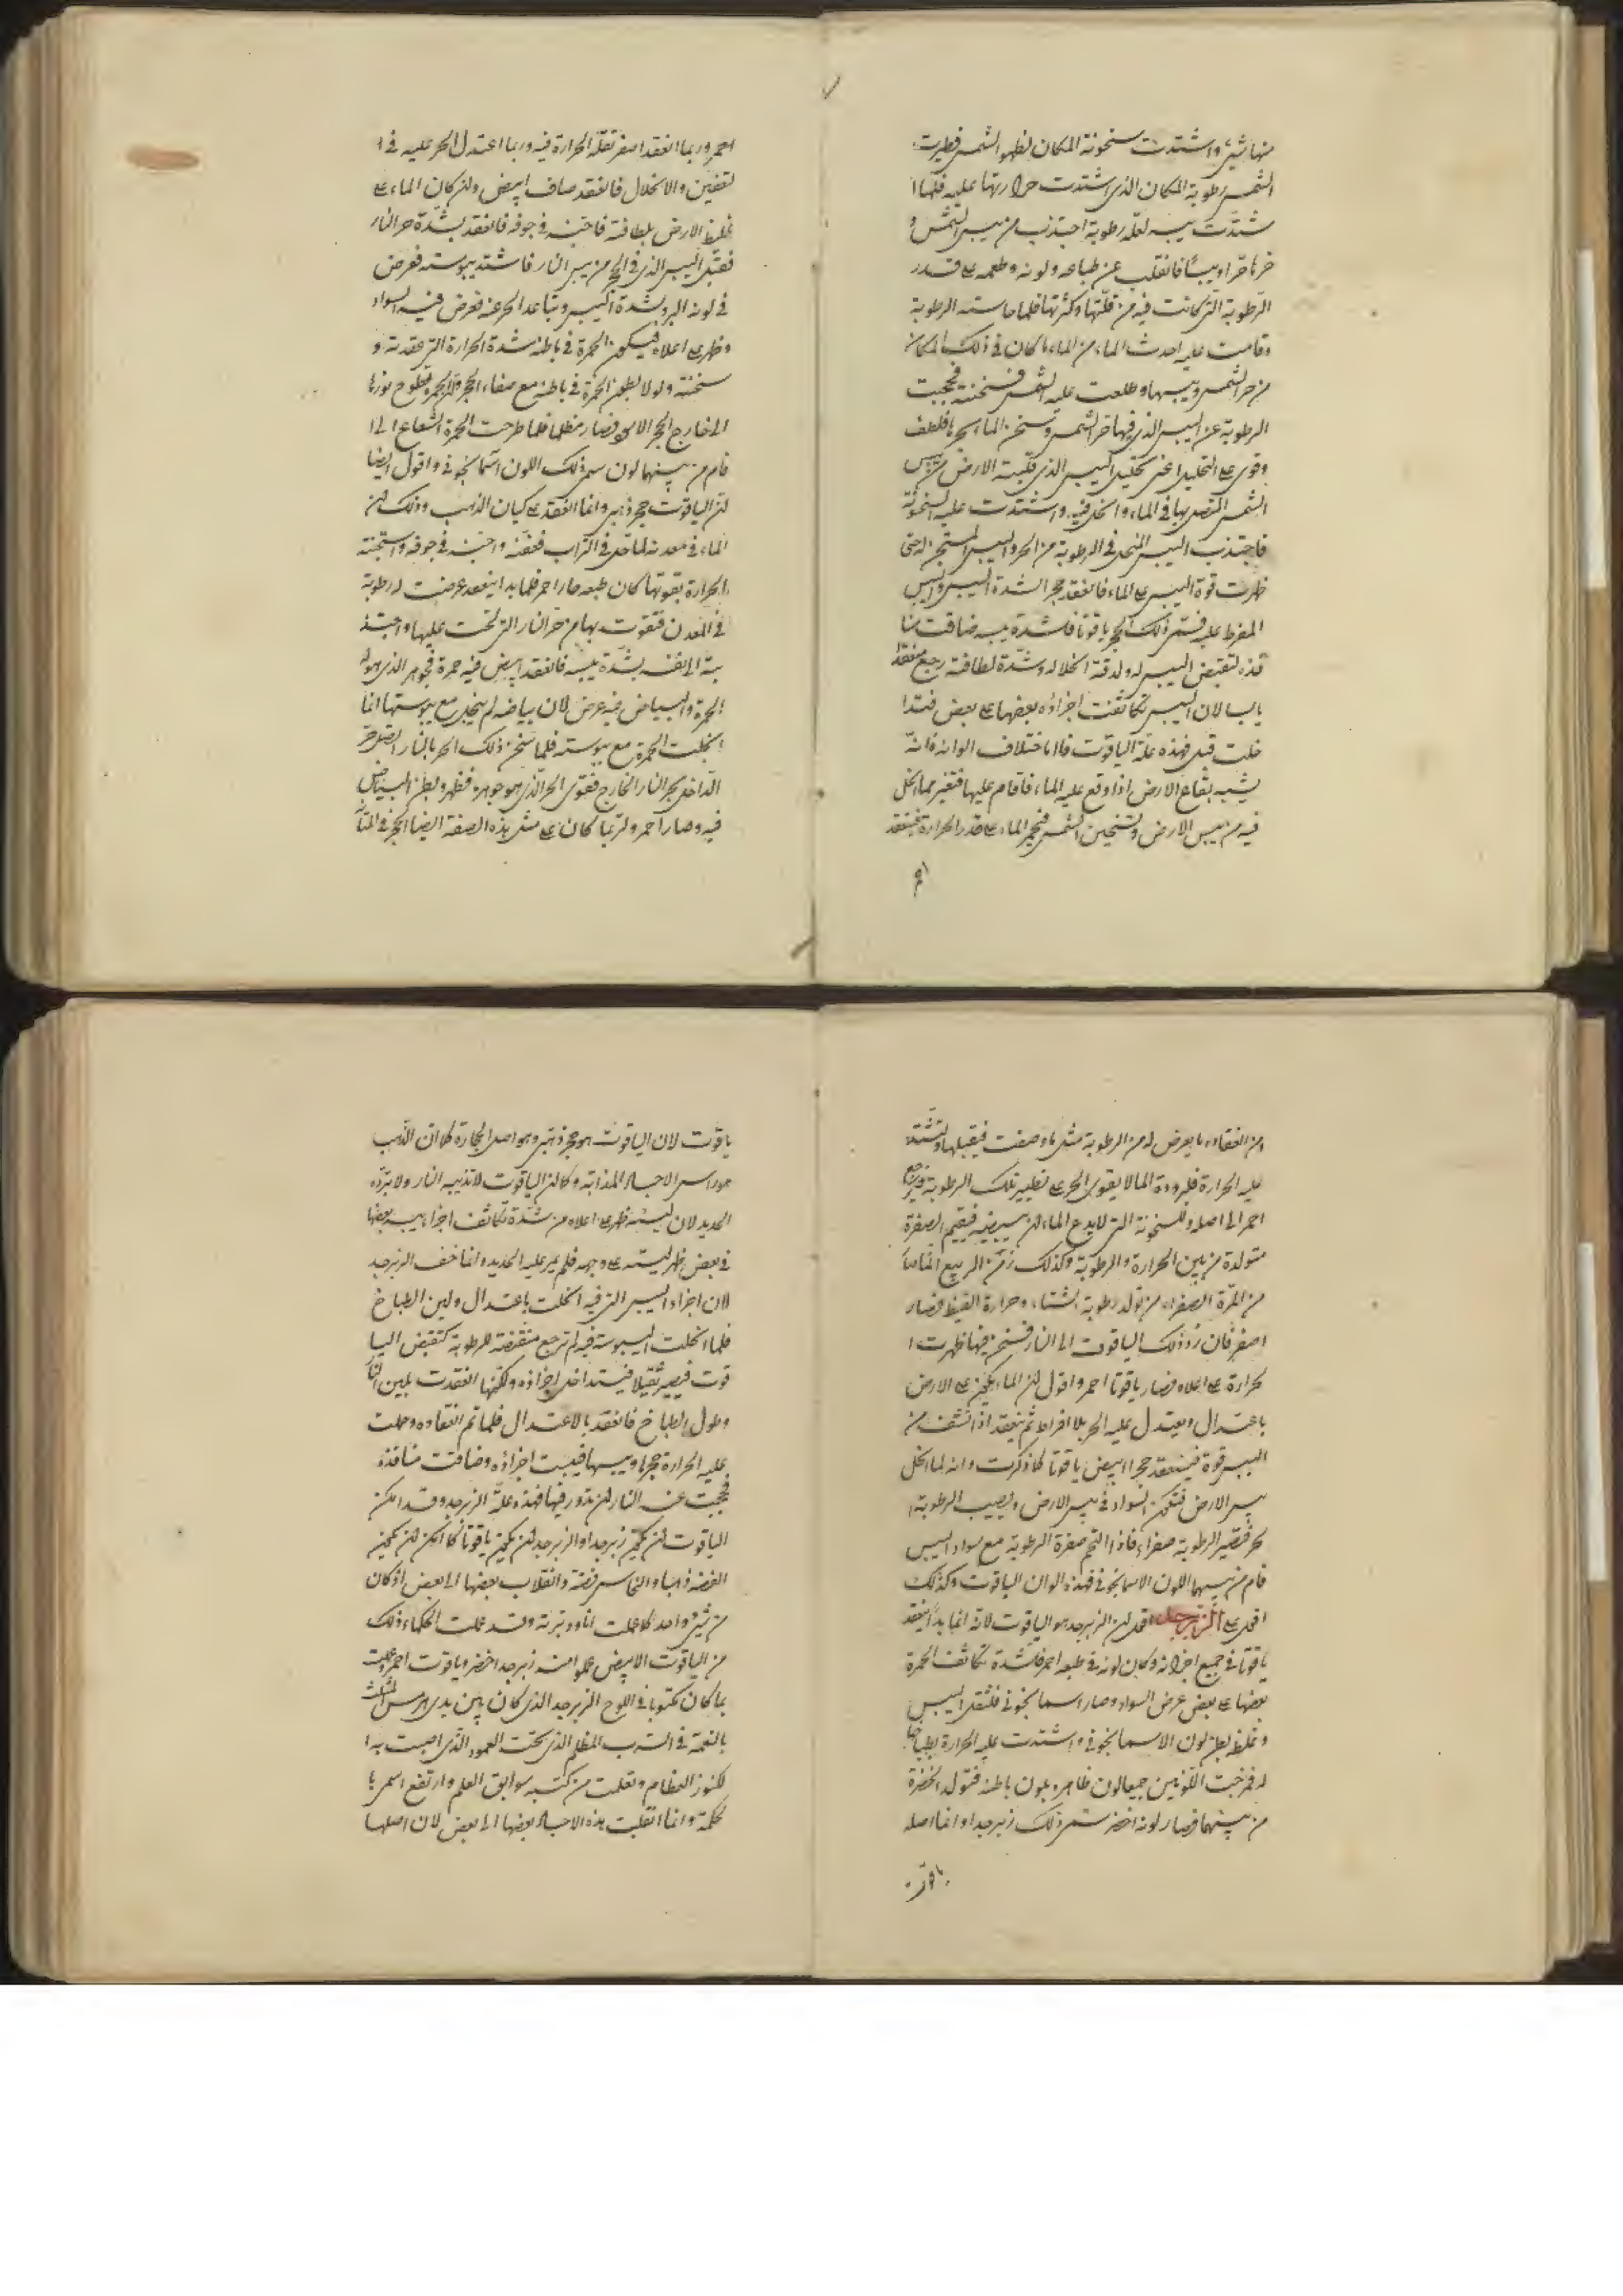 منها شئ واشتدت سخونة المكان لظهور الشمس فطيرت
الشمس رطوبة المكان الذي اشتدت حرارتها عليه فلما ا
شتدت يبسه لعلة رطوبة اجتذب من يبس الشمس و
حرها حرا ويبسا فانقلب عن طباعه ولونه وطعمه على قدر
الرطوبة التي كانت فيه من قلتها وكثرتها فلما جاسته الرطوبة
وقامت عليه احدث الماء من الماء ما كان في ذلك المكان
من حر الشمس ويبسها وطلعت عليه الشمس فسخنته فحجبت
الرطوبة عن اليبس الذي فيها حر الشمس وسخن الماء بحرها فلطف
وقوى على التحليل اعني تحليل اليبس الذي قلبته الارض من يبس
الشمس المتصل بها في الماء وانحل فيه واشتدت عليه السخونة
فاجتذب اليبس المنحل في الرطوبة من الحر واليبس المسخن له حتى
ظهرت قوة اليبس على الماء فانعقد حجرا لشدة اليبس واليبس
المفرط عليه فسمي ذلك الحجر ياقوتا فلشدة يبسه ضاقت منا
فذه لتقبض اليبس له ولدقة انحلاله وشدة لطافته رجع منعقدا
يابسا لان اليبس تكاثفت اجزاؤه بعضها على بعض فتدا
خلت قبل فهذه علة الياقوت فاما اختلاف الوانه فانه
يشبه بقاع الارض اذا وقع عليه الماء فاقام عليها فتغير مما انحل
فيه من يبس الارض وتسخين الشمس فيحمر الماء على قدر الحرارة فينعقد
احمر وربما انعقد اصفر لقلة الحرارة فيه وربما اعتدل الحر عليه في ا
لتعفين والانحلال فانعقد صاف ابيض ولن كان الماء على
غلظ الارض بلطافته فاجنه في جوفه فانعقد بشدة حر النار
فقبل اليبس الذي في الحجر من يبس النار فاشتد يبوسته فعرض
في لونه البرد لشدة اليبس وتباعد الحر عنه فعرض فيه السواد
وظهر على اعلاه فيكون الحمرة في باطنه لشدة الحرارة التي عقدته و
سخنته ولولا بطون الحمرة في باطنه مع صفاء الحجر فتلوح نورها
الى خارج الحجر الاسود فصار مظلما فلما طرحت الحمرة الشعاع الى ا
قام من بينهما لون سمي ذلك اللون اسمانجوني واقول ايضا
لن الياقوت حجر ذهبي وانما انعقد على كيان الذهب وذلك لن
الماء في معدنه لما حل في التراب فعفنه واجنه في جوفه واسخنته
الحرارة بقوتها كان طبعه حارا احمر فلما بدا ينعقد عرضت له رطوبة
في المعدن فتقوت بها من حر النار التي لحت عليها واجتذ
بته الى نفسه بشدة يبسه فانعقد ابيض فيه حمرة فجوهر الذي هو له
الحمرة والبياض فيه عرض لان بياضه لم ينحل مع يبوستها انما
انحلت الحمرة مع يبوسته فلما سخن ذلك الحجر بالنار اتصل حر
الداخل بحر النار الخارج فقوى الحر الذي هو جوهره فظهر وبطن البياض
فيه وصار احمر ولربما كان على مثل هذه الصفة ايضا الحجر في المتا
من انعقاده ما يعرض له من الرطوبة مثل ما وصفت فيقبلها وتشتد
عليه الحرارة فلبرودة الماء لا يقوى الحر على تطيير تلك الرطوبة فيرجع
احمر الى اصله وللسخونة التي لا يدع الماء لن يبيضه فيقيم الصفرة
متولدة من بين الحرارة والرطوبة وكذلك زمن الربيع انما صا
من المرة الصفراء من تولد رطوبة الشتاء وحرارة القيظ فصار
اصفر فان رد ذلك الياقوت الى النار فسخن فيها ظهرت ا
لحرارة على اعلاه فصار ياقوتا احمر واقول لن الماء يكون على الارض
باعتدال ويعتدل عليه الحر بلا افراط ثم ينعقد اذا انشف من
اليبس قوة فينعقد حجرا ابيض ياقوتا كما ذكرت وانه لما انحل
يبس الارض فتكمن السواد في يبس الارض ويصيب الرطوبة ا
لحر فتصير الرطوبة صفراء فاذا التحم صفرة الرطوبة مع سواد اليبس
قام من بينهما اللون الاسمانجوني فهذه الوان الياقوت وكذلك
اقول على الزبرجد اقول لن الزبرجد هو الياقوت لانه انما بدا لينعقد
ياقوتا في جميع اجزائه وكان لونه في طبعه احمر فلشدة تكاثف الحمرة
بعضها على بعض عرض السواد وصار اسمانجوني فلثقل اليبس
وغلظه بطن لون الاسمانجوني واشتدت عليه الحرارة بطباخها
له فمزجت اللونين جميعا لون ظاهره بلون باطنه فتولد الخضرة
من بينهما فصار لونه اخضر سمي ذلك زبرجدا وانما اصله
ياقوت
ياقوت لان الياقوت هو حجر ذهبي وهو اصل الحجارة كما ان الذهب
هو راس الاجساد المذابة وكما لن الياقوت لا تذيبه النار ولا يبرده
الحديد لان ليسه ظهر على اعلاه من شدة تكاثف اجزاء يبسه بعضها
في بعض فظهر ليسته على وجهه فلم يمر عليه الحديد وانما خف الزبرجد
لان اجزاء اليبس التي فيه انحلت باعتدال ولين الطباخ
فلما انحلت اليبوسة فيه لم ترجع منقبضة للرطوبة كتقبض اليا
قوت فيصير ثقيلا فيتداخل اجزاؤه ولكنها انعقدت بلين النار
وطول الطباخ فانعقد بالاعتدال فلما تم انعقاده وحملت
عليه الحرارة بحرها ويبسها فيبست اجزاؤه وضاقت منافذه
فحجبت عنه النار لن تدور فيها فهذه علة الزبرجد وقد امكن
الياقوت لن يكون زبرجدا والزبرجد لن يكون ياقوتا كما امكن لن يكون
الفضة ذهبا والنحاس فضة وانقلاب بعضها الى بعض اذ كان
من شئ واحد كما عملت انا ودبرته وقد عملت الحكماء ذلك
من الياقوت الابيض عملوا منه زبرجد اخضر وياقوت احمر وعملت
بما كان مكتوبا في اللوح الزبرجد الذي كان بين يدي هرمس المثلث
بالنعمة في السرب المظلم الذي تحت العمود الذي اصبت به ا
لكنوز العظام وتعلمت من كتبه سوابق العلم وارتفع اسمي با
لحكمة وانما انقلبت هذه الاجساد بعضها الى بعض لان اصلها